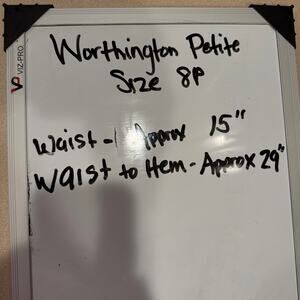 VIZ-PRO
Worthington Petite
Size 8P
Waist - Approx 15"
Waist to Hem - Approx 29"